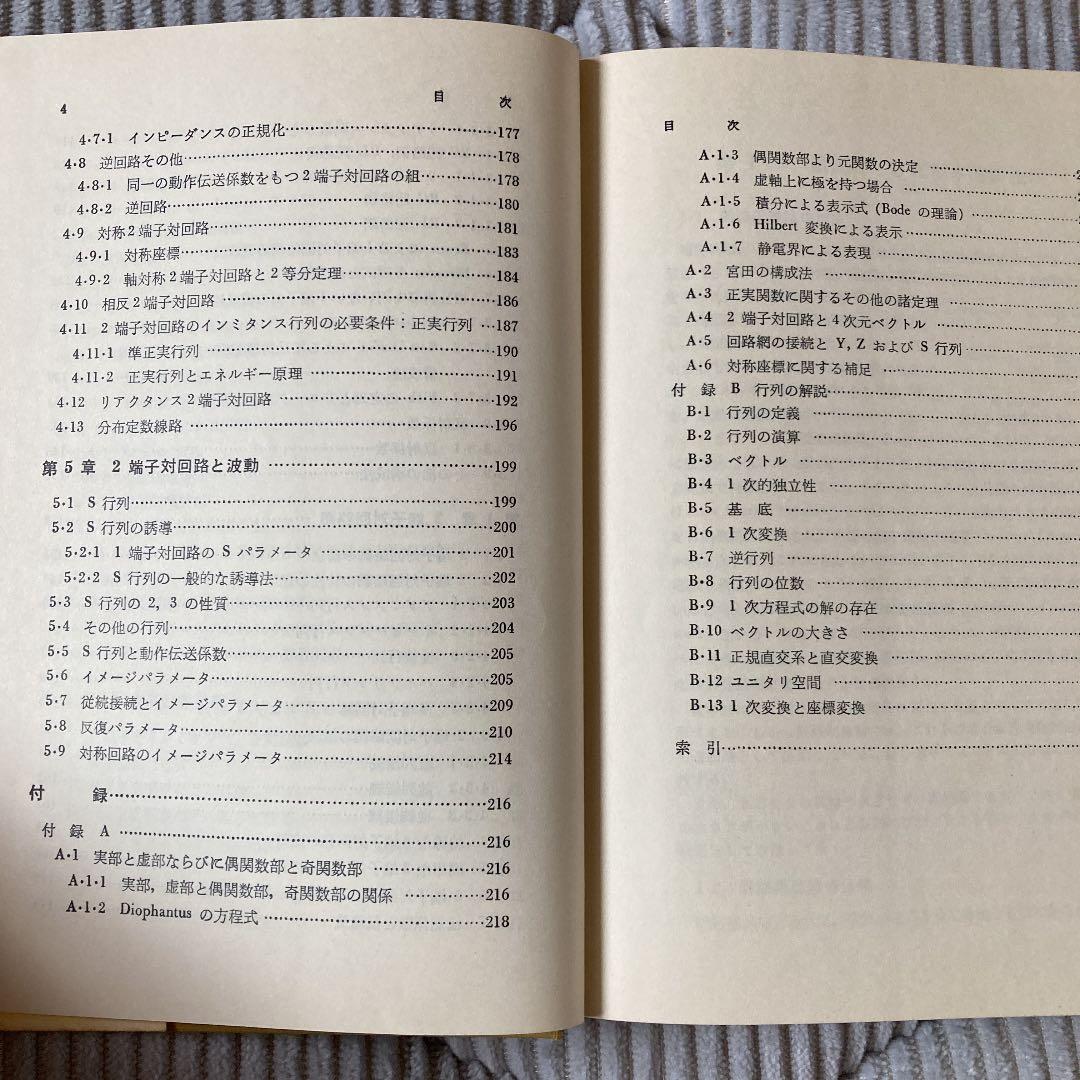 4 目 次
4・7・1 インピーダンスの正規化……177
4・8 逆回路その他……178
4・8・1 同一の動作伝送係数をもつ2端子対回路の組……178
4・8・2 逆回路……180
4・9 対称2端子対回路……181
4・9・1 対称座標……183
4・9・2 軸対称2端子対回路と2等分定理……184
4・10 相反2端子対回路……186
4・11 2端子対回路のインミタンス行列の必要条件：正実行列…187
4・11・1 準正実行列……190
4・11・2 正実行列とエネルギー原理……191
4・12 リアクタンス2端子対回路……192
4・13 分布定数線路……196
第5章 2端子対回路と波動……199
5・1 S行列……199
5・2 S行列の誘導……200
5・2・1 1端子対回路のSパラメータ……201
5・2・2 S行列の一般的な誘導法……202
5・3 S行列の2, 3の性質……203
5・4 その他の行列……204
5・5 S行列と動作伝送係数……205
5・6 イメージパラメータ……205
5・7 従続接続とイメージパラメータ……209
5・8 反復パラメータ……210
5・9 対称回路のイメージパラメータ……214
付 録……216
付録 A……216
A・1 実部と虚部ならびに偶関数部と奇関数部……216
A・1・1 実部，虚部と偶関数部，奇関数部の関係……216
A・1・2 Diophantus の方程式……218
目 次
A・1・3 偶関数部より元関数の決定……2
A・1・4 虚軸上に極を持つ場合……
A・1・5 積分による表示式 (Bode の理論)……
A・1・6 Hilbert 変換による表示……
A・1・7 静電界による表現……
A・2 宮田の構成法……
A・3 正実関数に関するその他の諸定理……
A・4 2端子対回路と4次元ベクトル……
A・5 回路網の接続と Y, Z および S 行列……
A・6 対称座標に関する補足……
付録 B 行列の解説……
B・1 行列の定義……
B・2 行列の演算……
B・3 ベクトル……
B・4 1次的独立性……
B・5 基底……
B・6 1次変換……
B・7 逆行列……
B・8 行列の位数……
B・9 1次方程式の解の存在……
B・10 ベクトルの大きさ……
B・11 正規直交系と直交変換……
B・12 ユニタリ空間……
B・13 1次変換と座標変換……
索 引……